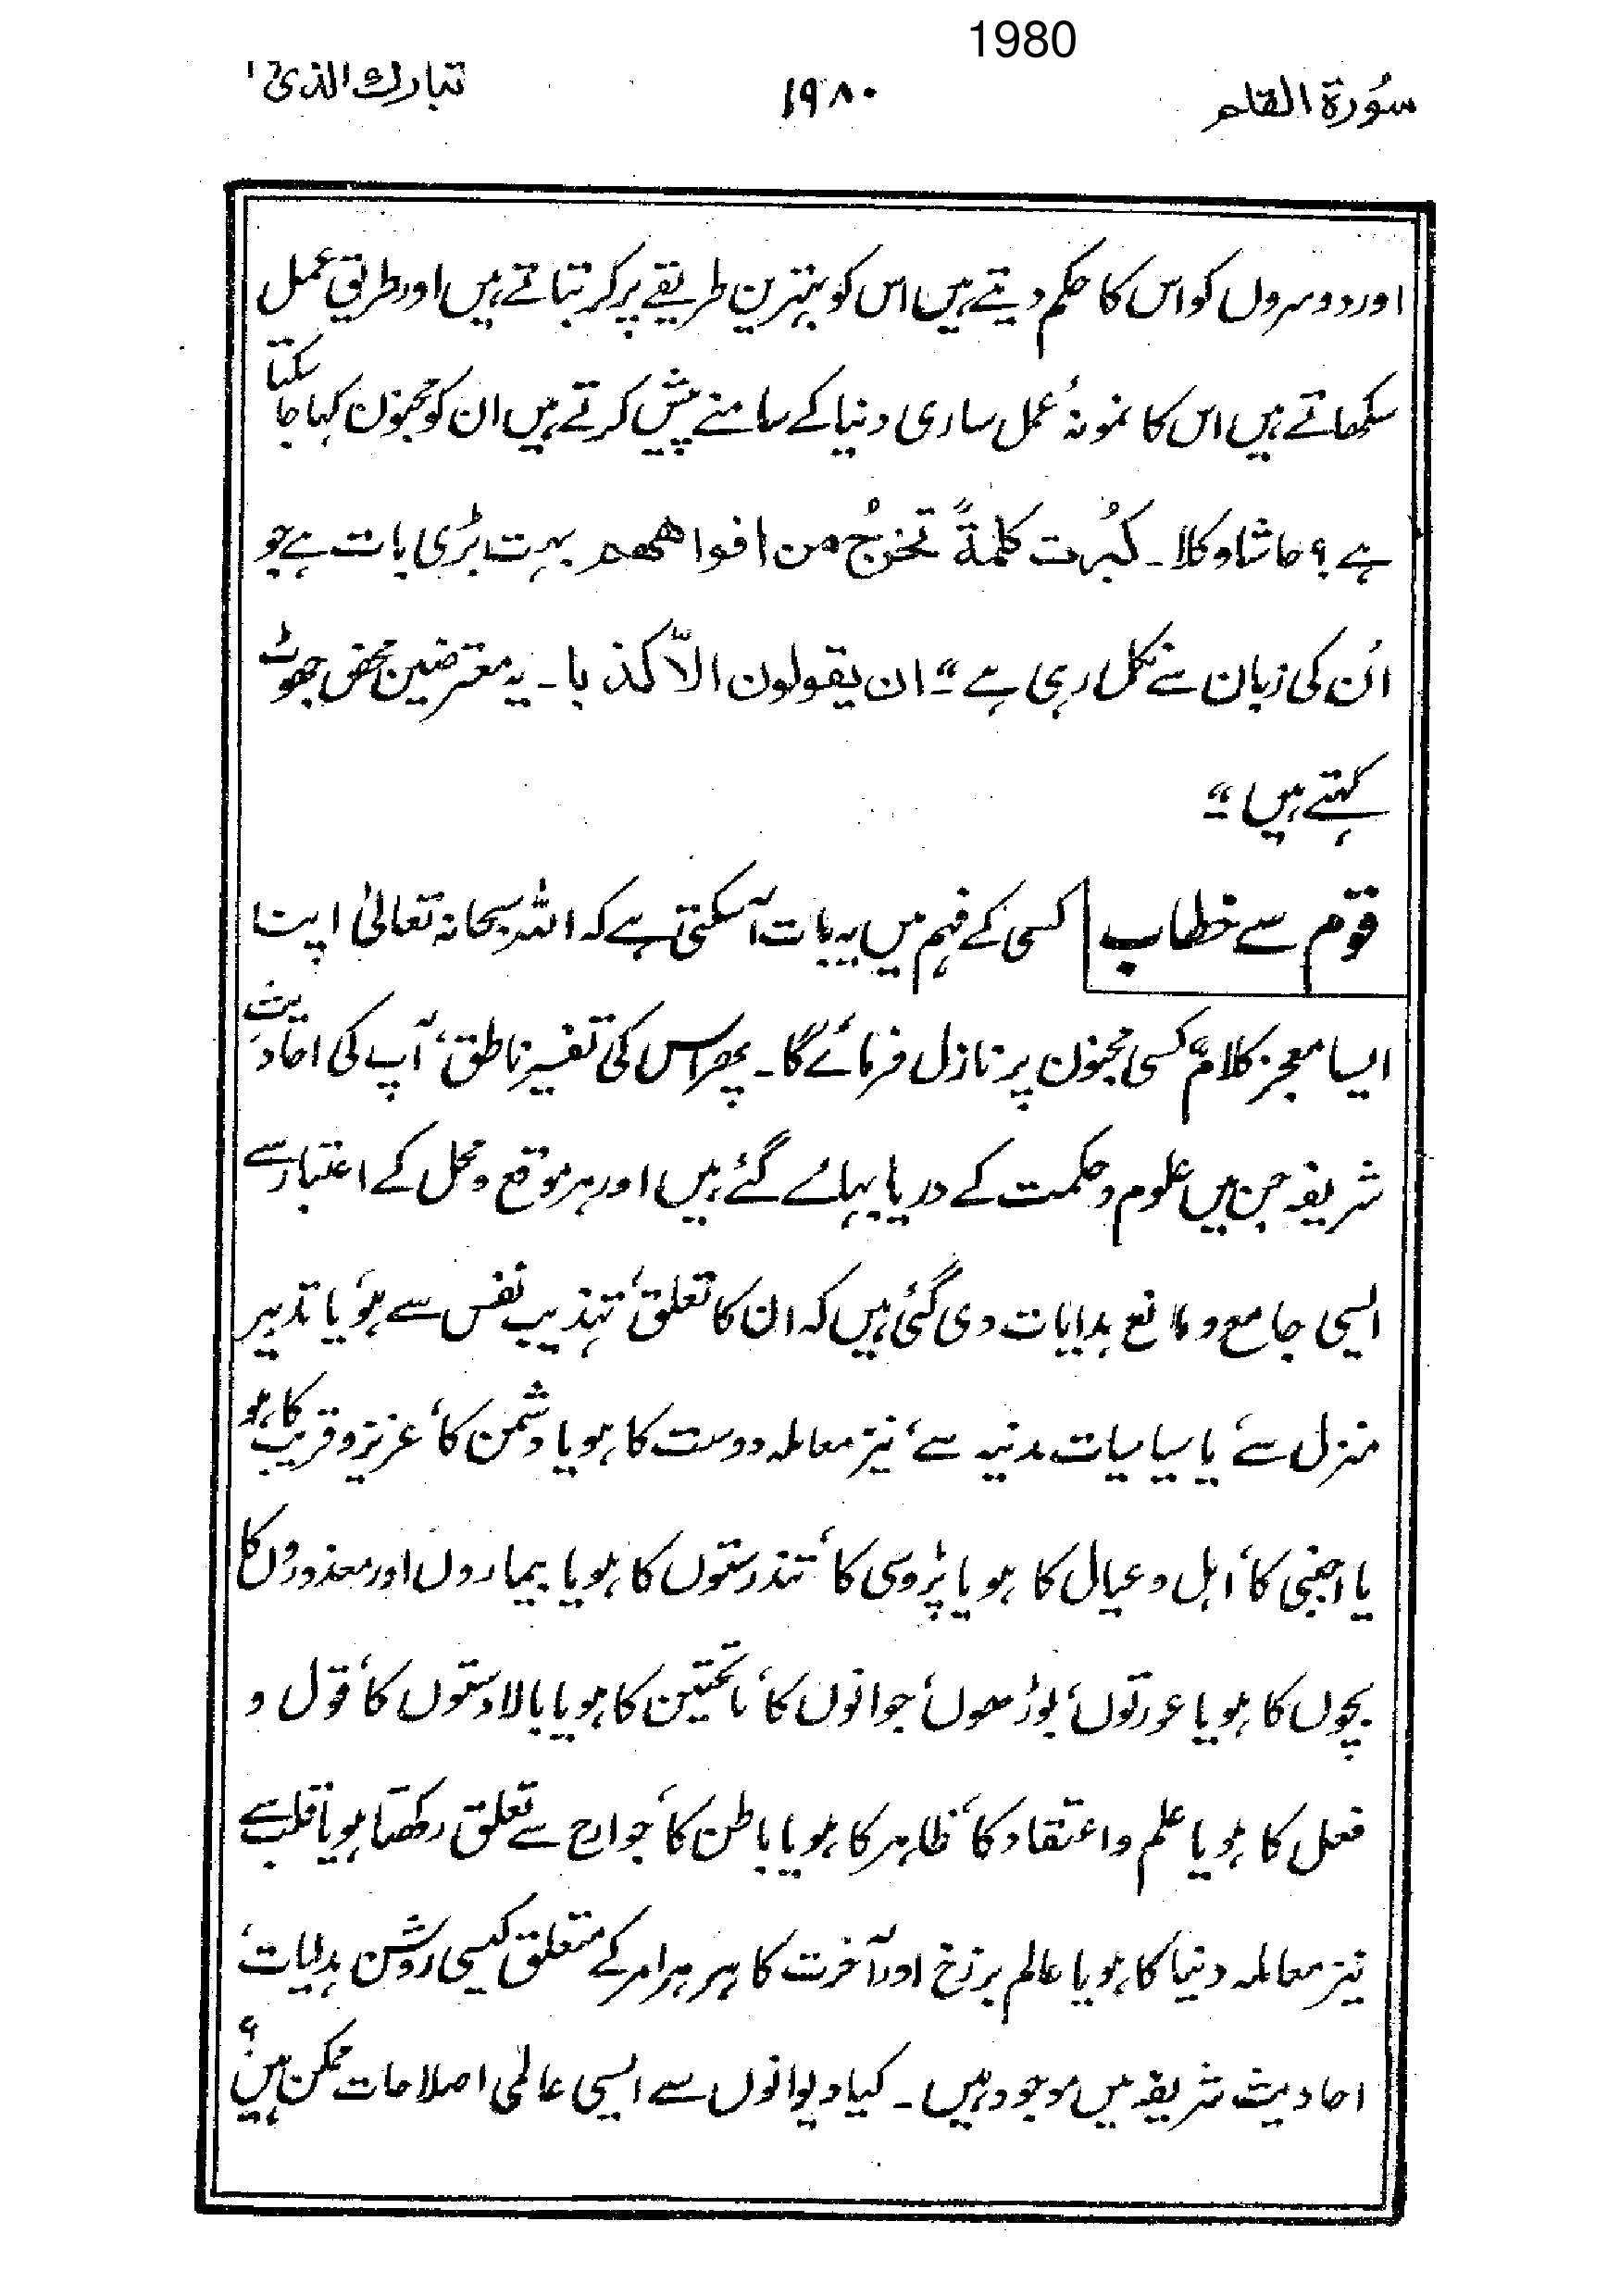 1980
سُورۃ القلم ۱۹۸۰ تبارك الذی
اور دوسروں کو اس کا حکم دیتے ہیں اس کو بہترین طریقے پر کر بتاتے ہیں اور طریقِ عمل
سکھاتے ہیں اس کا نمونۂ عمل ساری دنیا کے سامنے پیش کرتے ہیں ان کو مجنون کہا جا سکتا
ہے؟ حاشا وکلا۔ کبُرت کلمةً تخرجُ من افواههم بہت بڑی بات ہے جو
اُن کی زبان سے نکل رہی ہے‘‘ ان یقولون الاّ کذبا۔ یہ معترضین محض جھوٹ
کہتے ہیں‘‘
قوم سے خطاب کسی کے فہم میں یہ بات آسکتی ہے کہ اللہ سبحانہ تعالیٰ اپنا
ایسا معجز کلام کسی مجنون پر نازل فرمائے گا۔ پھر اس کی تفسیر ناطق، آپ کی احادیثِ
شریفہ جن میں علوم و حکمت کے دریا بہائے گئے ہیں اور ہر موقع و محل کے اعتبار سے
ایسی جامع و مانع ہدایات دی گئی ہیں کہ ان کا تعلق، تہذیب نفس سے ہو، یا تدبیر
منزل سے، یا سیاسیات مدنیہ سے، نیز معاملہ دوست کا ہو یا دشمن کا، عزیز و قریب کا ہو
یا اجنبی کا، اہل و عیال کا ہو یا پڑوسی کا، تندرستوں کا ہو یا بیماروں اور معذوروں کا
بچوں کا ہو یا عورتوں، بوڑھوں، جوانوں کا، ماتحتین کا ہو یا بالا دستوں کا، قول و
فعل کا ہو یا علم و اعتقاد کا، ظاہر کا ہو یا باطن کا، جوارح سے تعلق رکھتا ہو یا قلب سے
نیز معاملہ دنیا کا ہو یا عالم برزخ اور آخرت کا ہر ہر امر کے متعلق کیسی روشن ہدایات،
احادیث شریفہ میں موجود ہیں۔ کیا دیوانوں سے ایسی عالمی اصلاحات ممکن ہیں؟